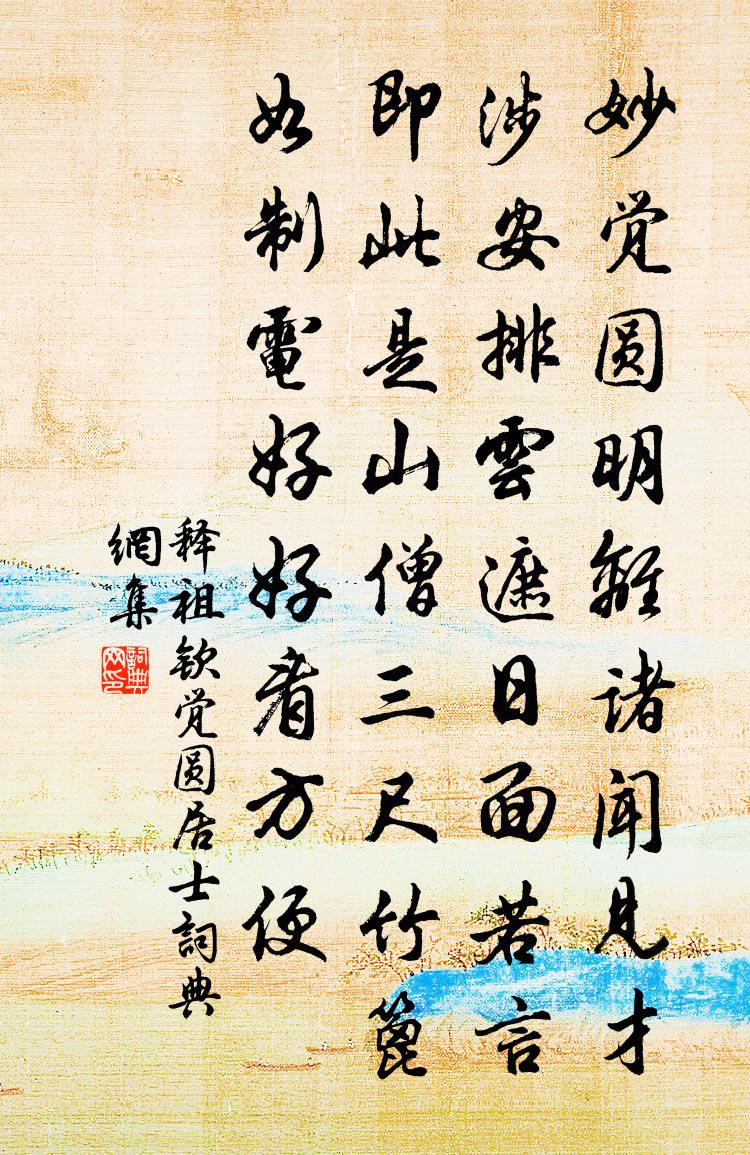 妙觉圆明離诸闻见才
涉安排雲遮日面若言
即此是山僧三尺竹篦
如制電好好看方便
释祖钦觉圆居士詞典
網集
詞典
网印